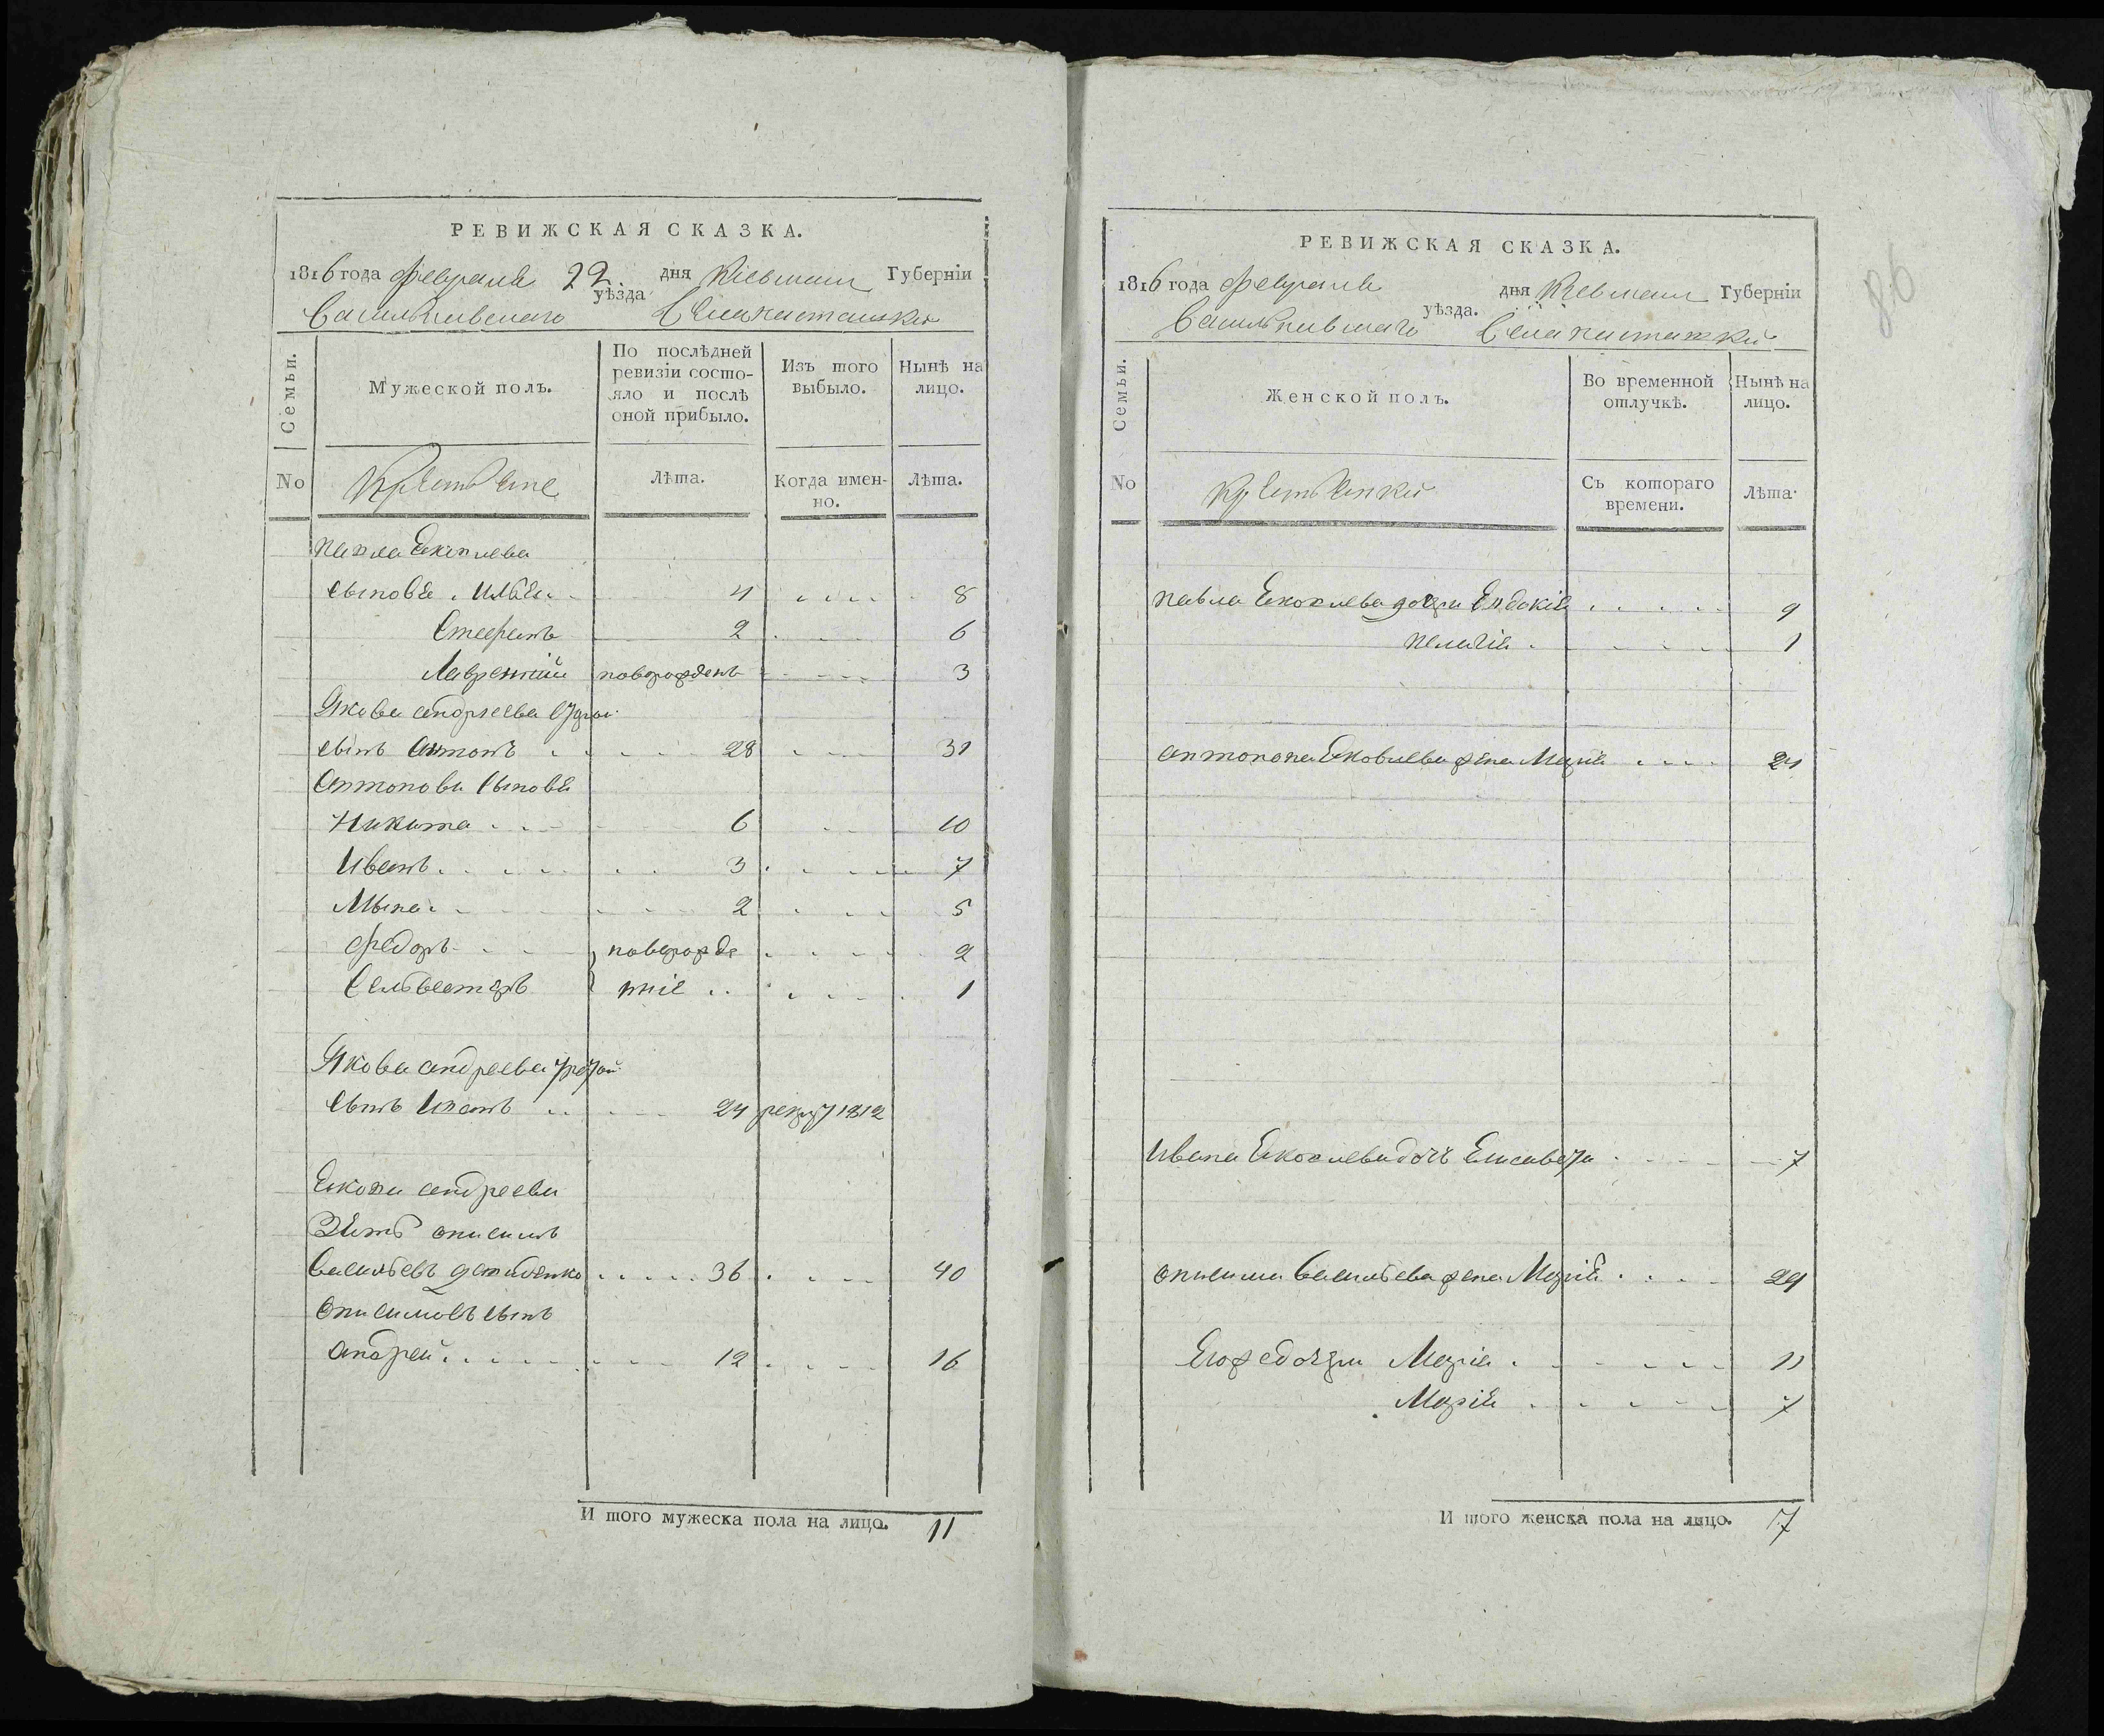 РЕВИЖСКАЯ СКАЗКА.
1816 года февраля 22. дня Кіевской Губерніи
уѣзда
Васильковскаго Села
Семьи.
Мужеской полъ.
По послѣдней ревизіи состояло и послѣ оной прибыло.
Изъ того выбыло.
Нынѣ на лицо.
No
Крестьяне
Лѣта.
Когда именно.
Лѣта.
Павла Яковлева
сыновья Илья 4 8
Стефанъ 2 6
Лаврентій новорожденъ 3
Якова андреева
сынъ Антонъ 28 31
Антонова сыновья
Никита 6 10
Иванъ 3 7
2 5
Федоръ новорожде 2
Селвестеръ нніе 1
Якова андреева
сынъ Иванъ 24 1812
Якова андреева
Зять онисимъ
Васильевъ 36 40
Онисимовъ сынъ
андрей 12 16
И того мужеска пола на лицо. 11
86
РЕВИЖСКАЯ СКАЗКА.
1816 года февраля дня Кіевской Губерніи
уѣзда.
Васильковскаго Села
Семьи.
Женской полъ.
Во временной отлучкѣ.
Нынѣ на лицо.
No
Крестьянки
Съ котораго времени.
Лѣта.
Павла Яковлева дочери Евдокія 9
Пелагія 1
антонова Яковлева жена Марія 24
Ивана Яковлева дочь Елисавета 7
онисима Васильева жена Марія 29
Егоже дочери Марія 11
Марія 7
И того женска пола на лицо. 7